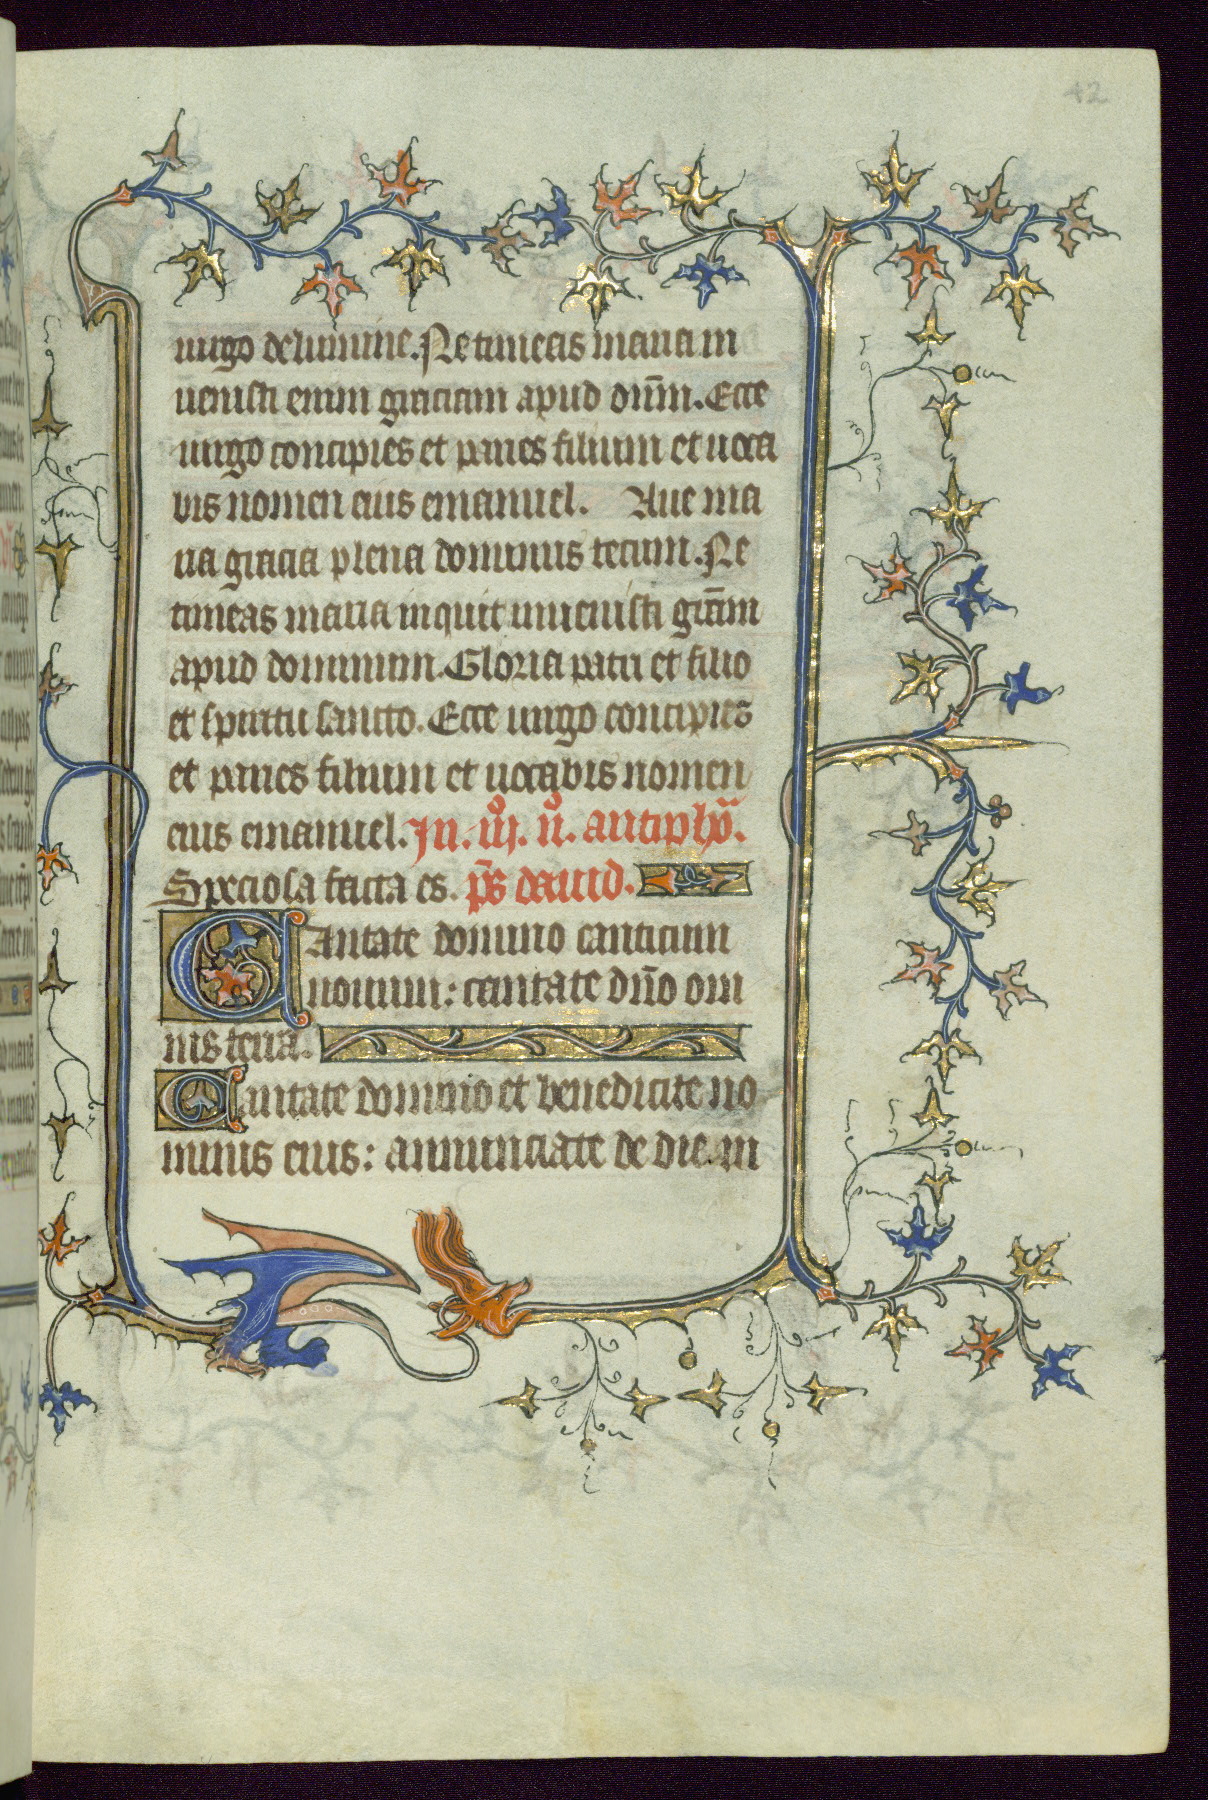 42
uirgo de lumine. Ne timeas maria in
uenisti enim graciam apud dnm̄. Ecce
uirgo concipies et paries filium et uoca
bis nomen eius emanuel. Aue ma
ria gracia plena dominus tecum. Ne
timeas maria inquit inuenisti grām
apud dominum. Gloria patri et filio
et spiritu sancto. Ecce uirgo concipies
et paries filium et uocabis nomen
eius emanuel. In. iij. n. antiphō.
Speciosa facta es. ps̄ dauid.
Cantate domino canticum
nouum: cantate dn̄o om
nis terra.
Cantate domino et benedicite no
minis eius: annunciate de die in